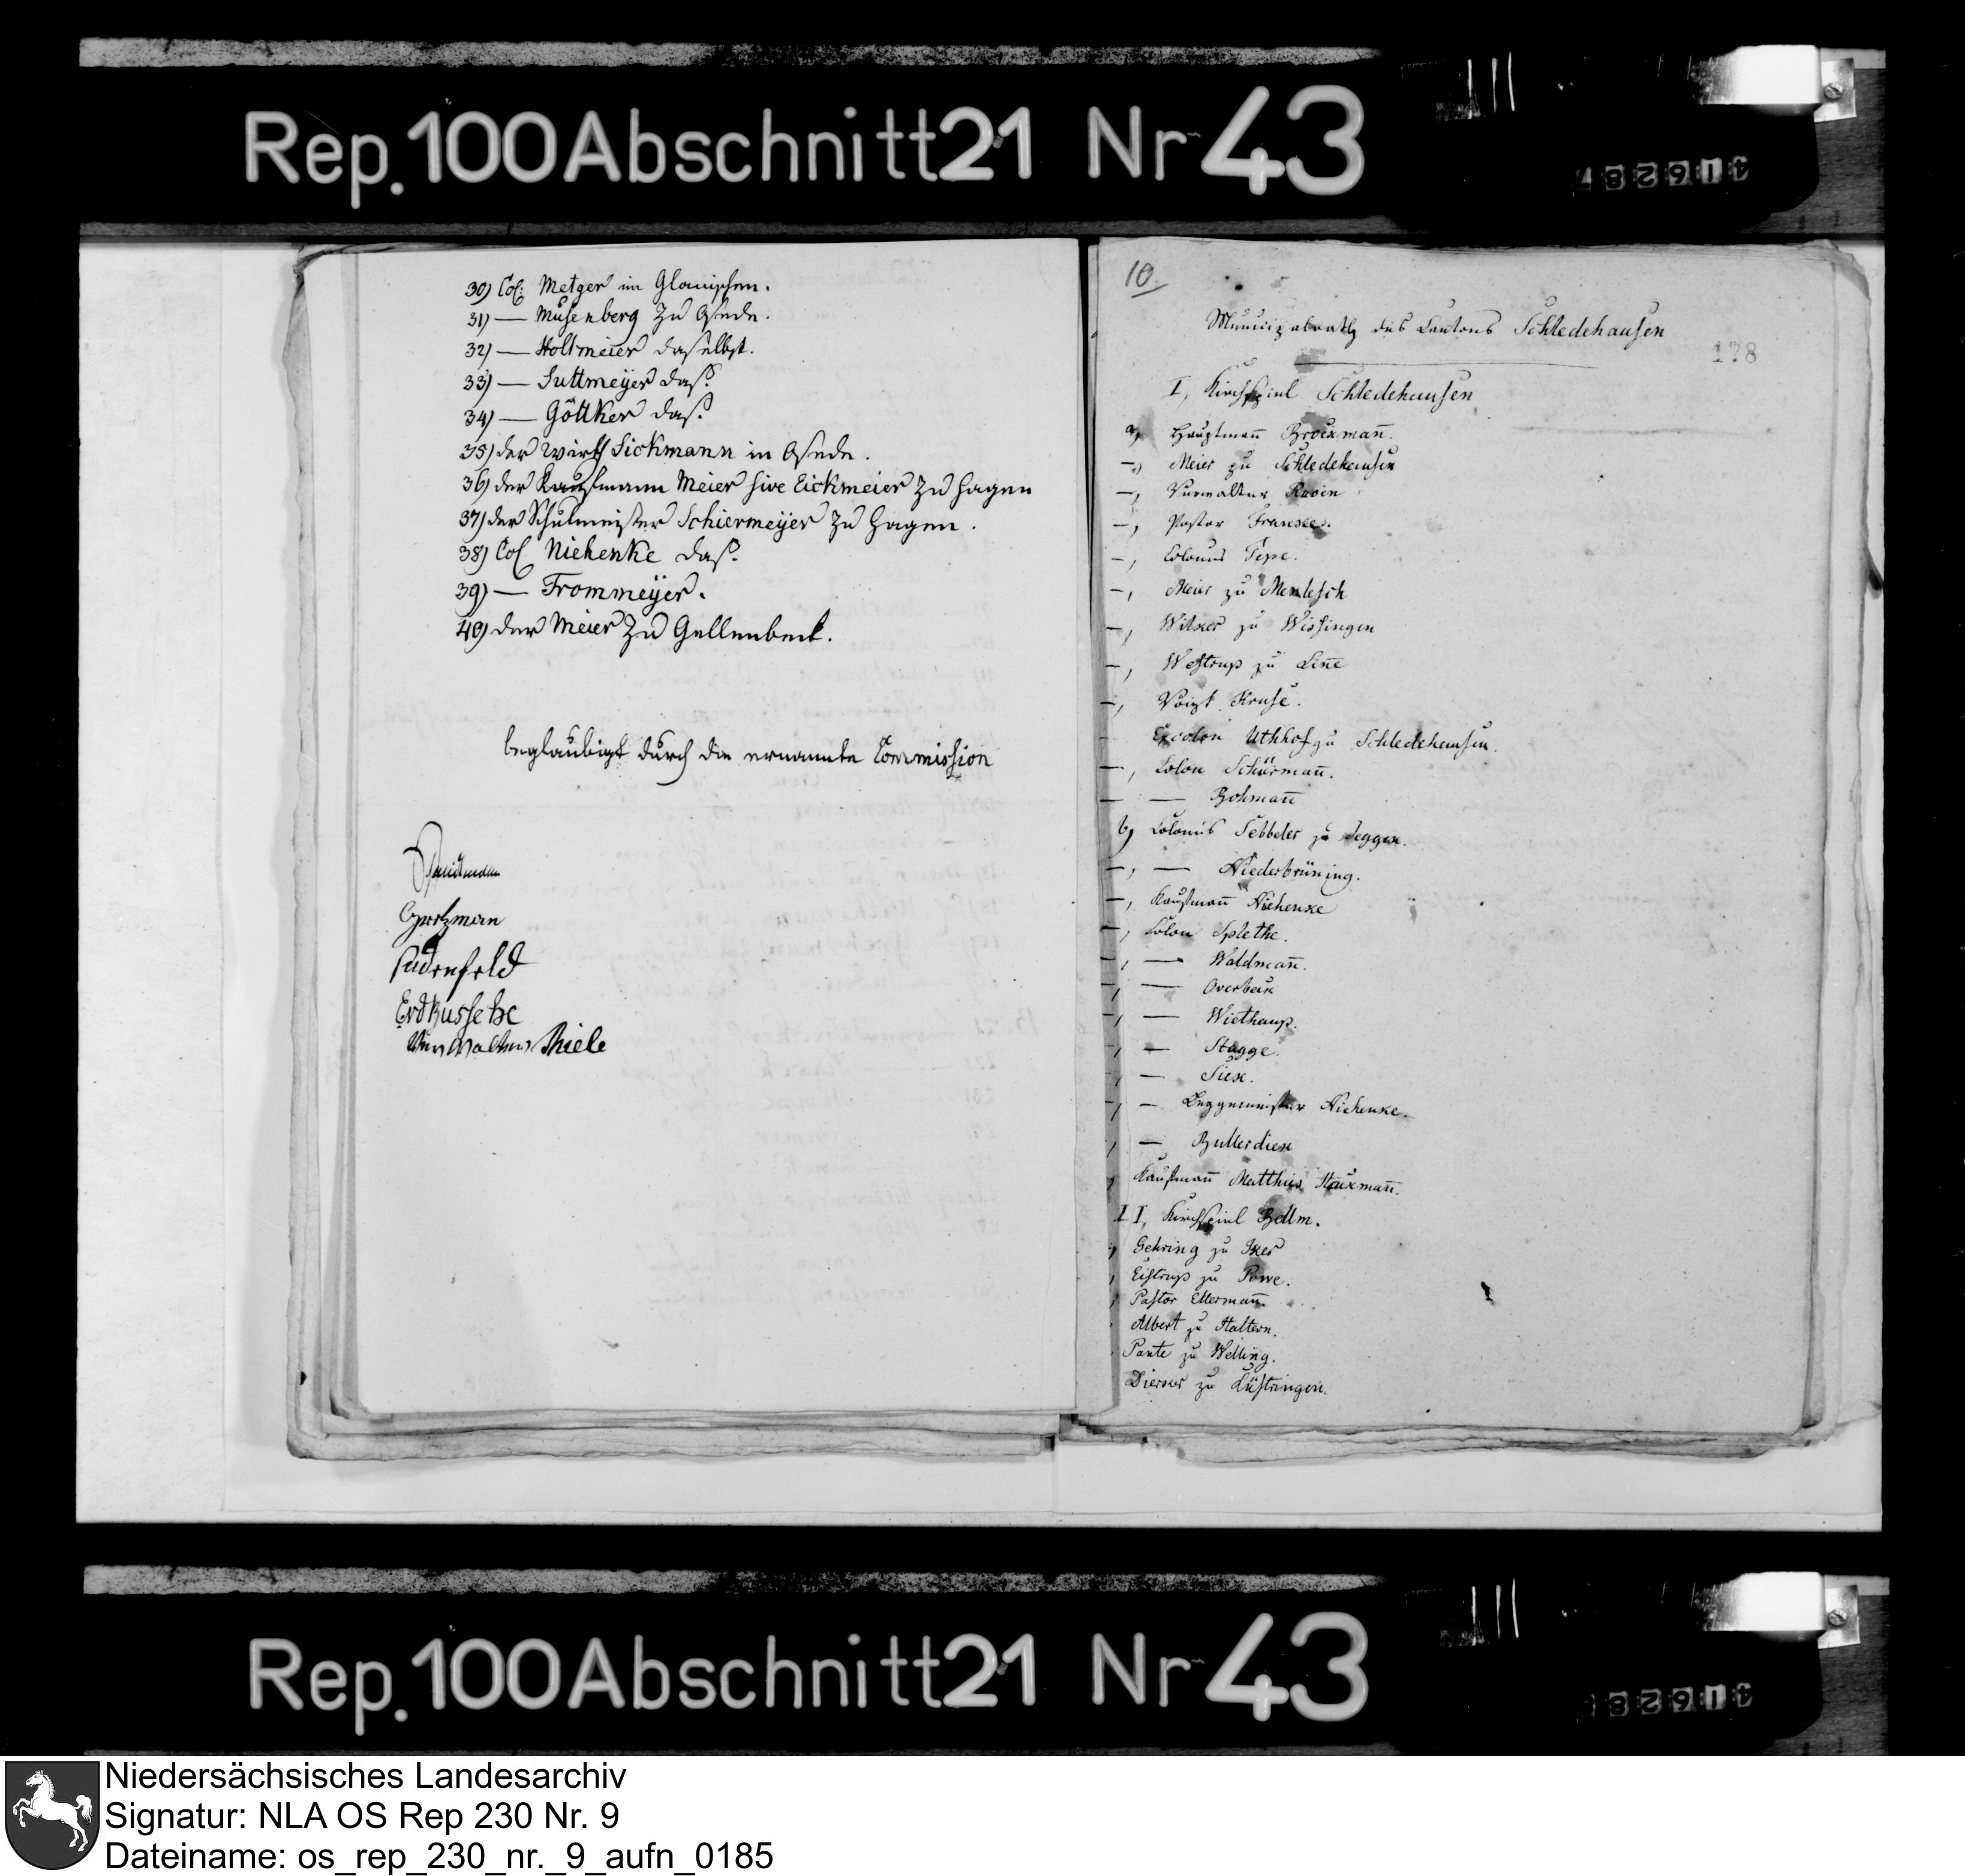 Rep. 100 Abschnitt 21 Nr 43
41628
30) Col. Metger im Glanischen.
31) — Musenberg zu Oesede.
32) — Holtmeier daselbst.
33) — Suttmeÿer das.
34) — Göttker das.
35) der Wirth Sickmann in Oesede.
36) der Kaufmann Meier sive Eickmeier zu Hagen
37) der Schulmeister Schiermeÿer zu Hagen.
38) Col Niehenke das.
39) — Frommeÿer.
40) der Meier zu Gellenbeck.
beglaubigt durch die ernannte Commission
Sudenfeld
Verwalter Thiele
10.
Municipalrath des Cantons Schledehausen
178
I, Kirchspiel Schledehausen
a, Hauptmañ Brockmañ.
—, Meier zu Schledehausen
—, Verwalter
—, Pastor
—, Colonus Tepe.
—, Meier zu
—, Wilker zu Wissingen
—, Westrup zu Liñe
—, Voigt Kruse.
Excolon Uthhof zu Schledehausen.
—, Colon Schürmañ.
— — Bohmañ
b, Colonus Sebbeler zu Jeggen.
—, — Niederbrüning.
—, Kaufmañ Niehenke
—, Colon Splethe.
—, — Waldmañ.
—, — Overbeck
—, — Wiethaup.
—, — Stagge.
—, — Siek.
—, — Leggemeister Niehenke.
, — Bullerdiek
, Kaufmañ Matthias
II, Kirchspiel Bellm.
, Gehring zu Iker
, Eistrup zu Powe.
, Pastor Ellermañ.
Albert zu Haltern.
Pante zu Welling.
Dierker zu Lüstringen.
Rep. 100 Abschnitt 21 Nr 43
41628
Niedersächsisches Landesarchiv
Signatur: NLA OS Rep 230 Nr. 9
Dateiname: os_rep_230_nr._9_aufn_0185